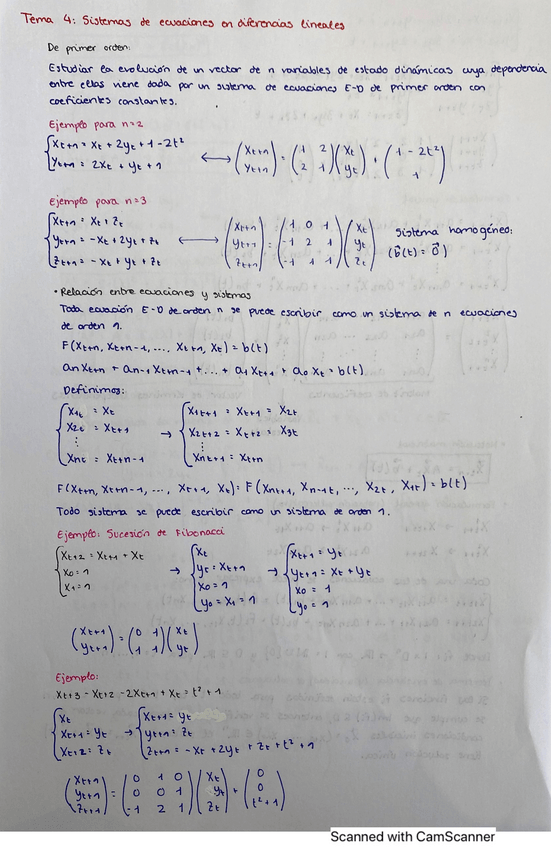 Tema 4: Sistemas de ecuaciones en diferencias lineales
De primer orden:
Estudiar la evolución de un vector de n variables de estado dinámicas cuya dependencia
entre ellas viene dada por un sistema de ecuaciones E-D de primer orden con
coeficientes constantes.
Ejemplo para n=2
{ Xt+1 = Xt + 2yt + 1 - 2t²
{ yt+1 = 2Xt + yt + 1
⟷ (Xt+1 / yt+1) = (1 2 / 2 1)(Xt / yt) + (1 - 2t² / 1)
Ejemplo para n=3
{ Xt+1 = Xt + Zt
{ yt+1 = -Xt + 2yt + Zt
{ Zt+1 = -Xt + yt + Zt
⟷ (Xt+1 / yt+1 / Zt+1) = (1 0 1 / -1 2 1 / -1 1 1)(Xt / yt / Zt)
Sistema homogéneo:
(b⃗(t) = 0⃗)
• Relación entre ecuaciones y sistemas
Toda ecuación E-D de orden n se puede escribir como un sistema de n ecuaciones
de orden 1.
F(Xt+n, Xt+n-1, ..., Xt+1, Xt) = b(t)
an Xt+n + an-1 Xt+n-1 + ... + a1 Xt+1 + a0 Xt = b(t)
Definimos:
{ X1t = Xt
{ X2t = Xt+1
{ ⋮
{ Xnt = Xt+n-1
→ { X1t+1 = Xt+1 = X2t
{ X2t+2 = Xt+2 = X3t
{ ⋮
{ Xnt+1 = Xt+n
F(Xt+n, Xt+n-1, ..., Xt+1, Xt) = F(Xnt+1, Xn-1t, ..., X2t, X1t) = b(t)
Todo sistema se puede escribir como un sistema de orden 1.
Ejemplo: Sucesión de Fibonacci
{ Xt+2 = Xt+1 + Xt
{ X0 = 1
{ X1 = 1
→ { Xt
{ yt = Xt+1
{ X0 = 1
{ y0 = X1 = 1
→ { Xt+1 = yt
{ yt+1 = Xt + yt
{ X0 = 1
{ y0 = 1
(Xt+1 / yt+1) = (0 1 / 1 1)(Xt / yt)
Ejemplo:
Xt+3 - Xt+2 - 2Xt+1 + Xt = t² + 1
{ Xt
{ Xt+1 = yt
{ Xt+2 = Zt
→ { Xt+1 = yt
{ yt+1 = Zt
{ Zt+1 = -Xt + 2yt + Zt + t² + 1
(Xt+1 / yt+1 / Zt+1) = (0 1 0 / 0 0 1 / -1 2 1)(Xt / yt / Zt) + (0 / 0 / t² + 1)
Scanned with CamScanner